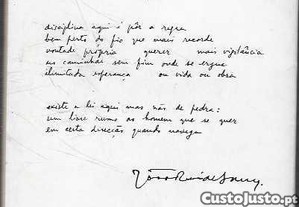 disciplina aqui é pôr a regra
bem perto do fio que mais recorde
vontade própria querer mais vigilância
no caminhar sem fim onde se ergue
ilimitada esperança ou vida ou obra
existe a lei aqui mas não de pedra:
um livre rumo ao homem que se quer
em certa direcção quando navega
João Rui de Sousa
CustoJusto.pt